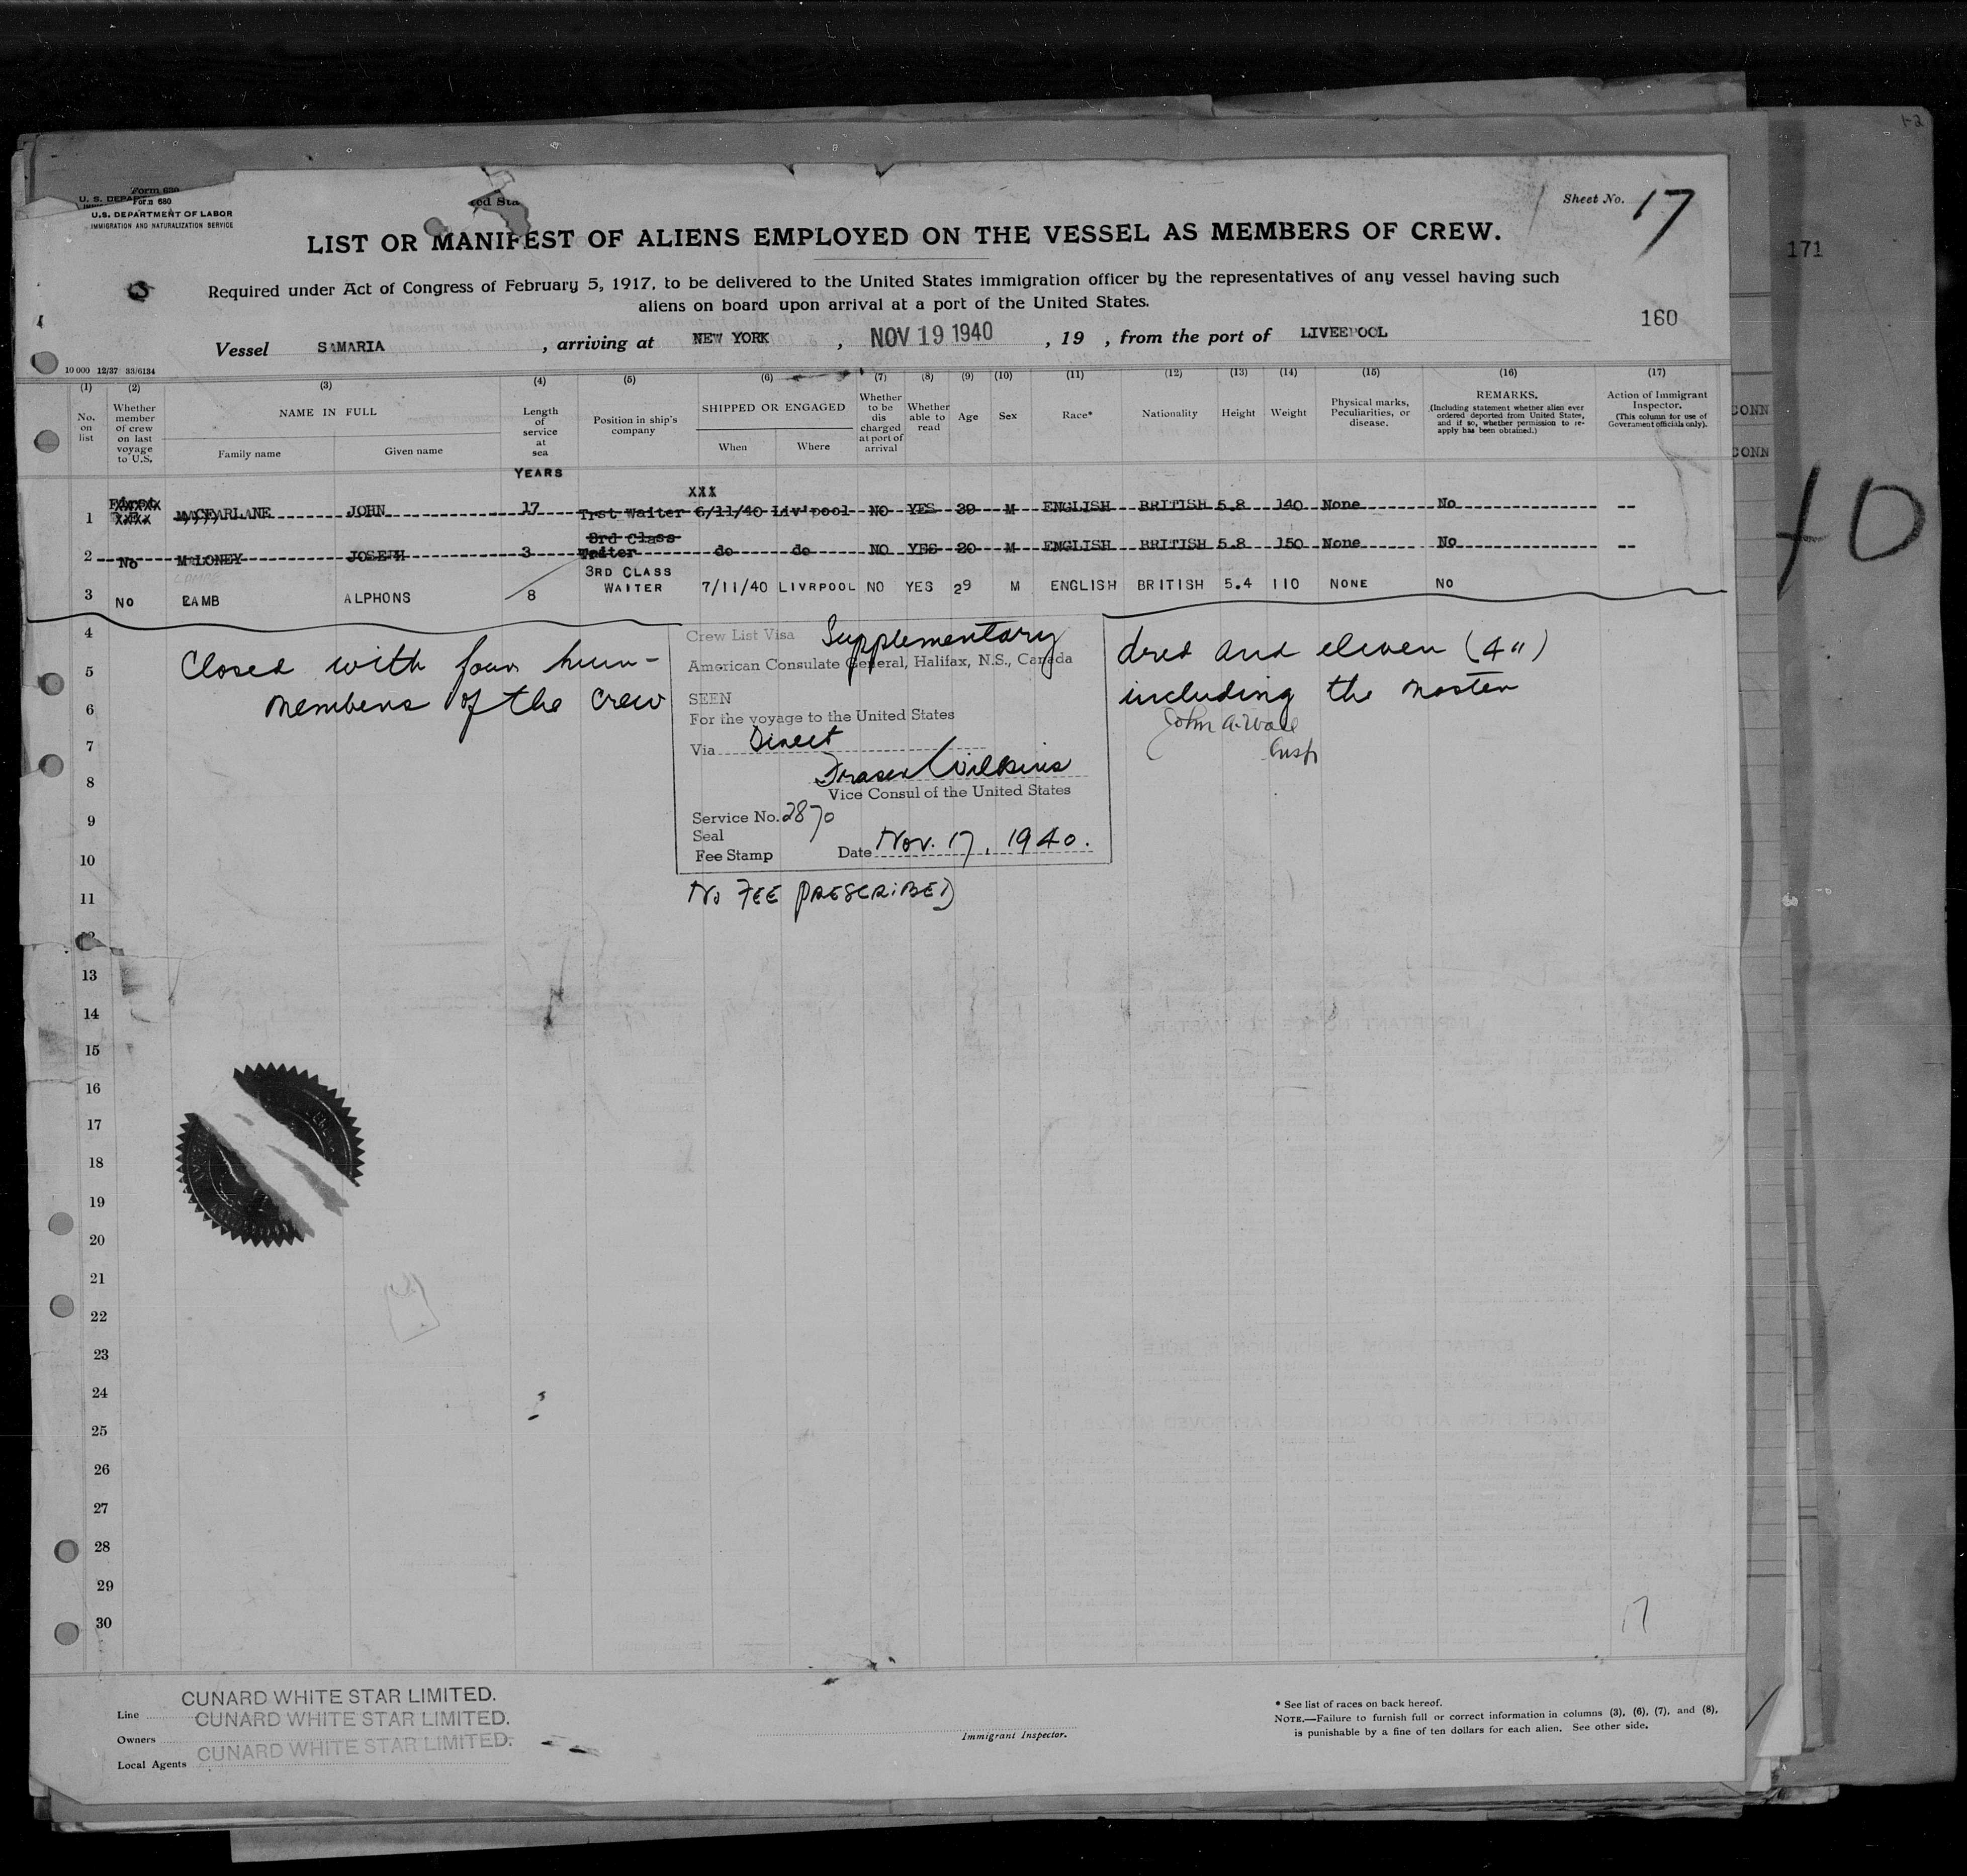 1-2
Form 680
U. S. DEPAR
Form 680
U.S. DEPARTMENT OF LABOR
IMMIGRATION AND NATURALIZATION SERVICE
ted Sta
Sheet No. 17
LIST OR MANIFEST OF ALIENS EMPLOYED ON THE VESSEL AS MEMBERS OF CREW.
171
Required under Act of Congress of February 5, 1917, to be delivered to the United States immigration officer by the representatives of any vessel having such
aliens on board upon arrival at a port of the United States.
160
Vessel SAMARIA , arriving at NEW YORK , NOV 19 1940 , 19 , from the port of LIVEEPOOL
10 000 12/37 33/6134
(1) (2) (3) (4) (5) (6) (7) (8) (9) (10) (11) (12) (13) (14) (15) (16) (17)
No. on list
Whether member of crew on last voyage to U.S.
NAME IN FULL
Family name
Given name
Length of service at sea
YEARS
Position in ship's company
SHIPPED OR ENGAGED
When
Where
Whether to be dis charged at port of arrival
Whether able to read
Age
Sex
Race*
Nationality
Height
Weight
Physical marks, Peculiarities, or disease.
REMARKS.
(Including statement whether alien ever ordered deported from United States, and if so, whether permission to re-apply has been obtained.)
Action of Immigrant Inspector.
(This column for use of Government officials only).
CONN
CONN
xxx
1 MACFARLANE JOHN 17 Trst Waiter 6/11/40 Liv'pool NO YES 39 M ENGLISH BRITISH 5.8 140 None No --
2 No MALONEY JOSEPH 3 3rd Class Waiter do do NO YES 20 M ENGLISH BRITISH 5.8 150 None No --
3 No LAMB ALPHONS 8 3RD CLASS WAITER 7/11/40 LIVRPOOL NO YES 29 M ENGLISH BRITISH 5.4 110 NONE NO
40
4
5
6
7
8
9
10
11
12
13
14
15
16
17
18
19
20
21
22
23
24
25
26
27
28
29
30
Closed with four hun-
members of the crew
Crew List Visa Supplementary
American Consulate General, Halifax, N.S., Canada
SEEN
For the voyage to the United States
Via Direct
Fraser Wilkins
Vice Consul of the United States
Service No. 2870
Seal
Fee Stamp
Date Nov. 17, 1940.
No FEE PRESCRIBED
dred and eleven (411)
including the master
John A. Wall
Insp
17
Line CUNARD WHITE STAR LIMITED.
Owners CUNARD WHITE STAR LIMITED.
Local Agents CUNARD WHITE STAR LIMITED.
Immigrant Inspector.
* See list of races on back hereof.
NOTE.—Failure to furnish full or correct information in columns (3), (6), (7), and (8),
is punishable by a fine of ten dollars for each alien. See other side.